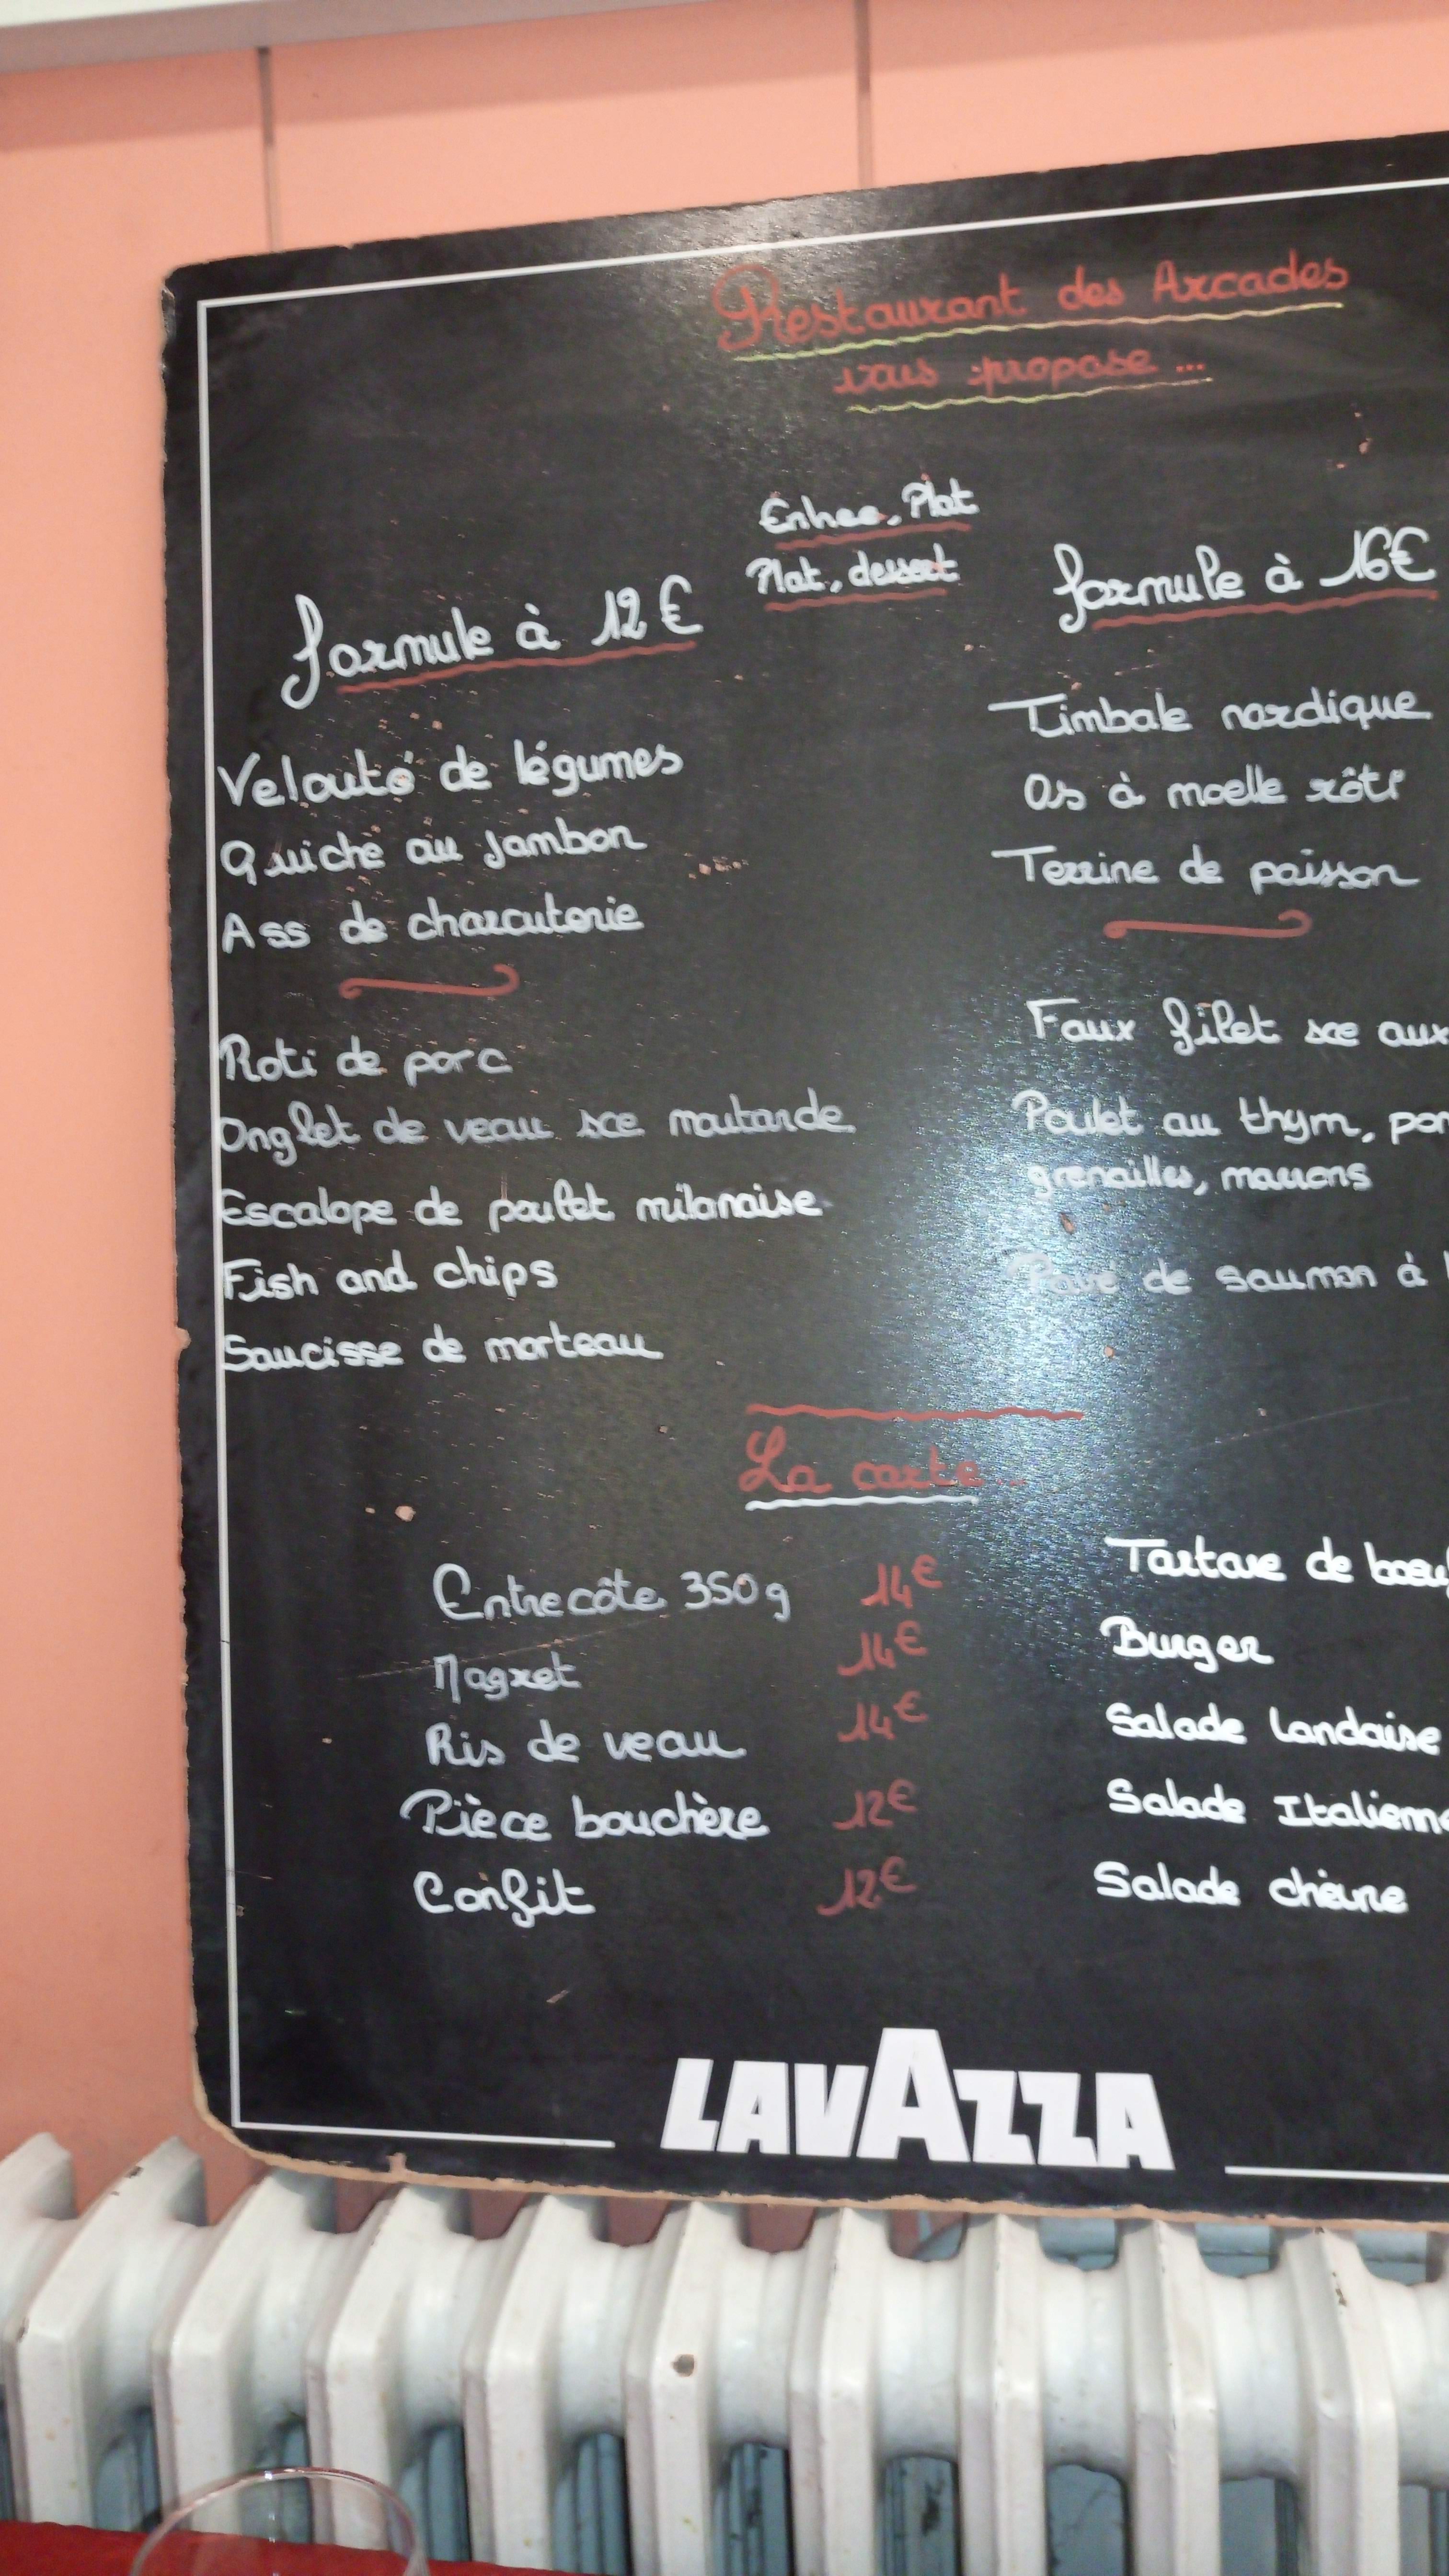 Restaurant des Arcades
vous propose ...
Entree, Plat
Plat, dessert
formule à 12€
Velouté de légumes
Quiche au jambon
Ass de charcuterie
Roti de porc
Onglet de veau sce moutarde
Escalope de poulet milanaise
Fish and chips
Saucisse de morteau
formule à 16€
Timbale nordique
Os à moelle rôti
Terrine de poisson
Faux filet sce aux
Poulet au thym,
grenailles, marrons
Pavé de saumon à
La carte...
Entrecôte 350g 14€
Magret 14€
Ris de veau 14€
Pièce bouchère 12€
Confit 12€
Tartare de
Burger
Salade Landaise
Salade
Salade chèvre
LAVAZZA